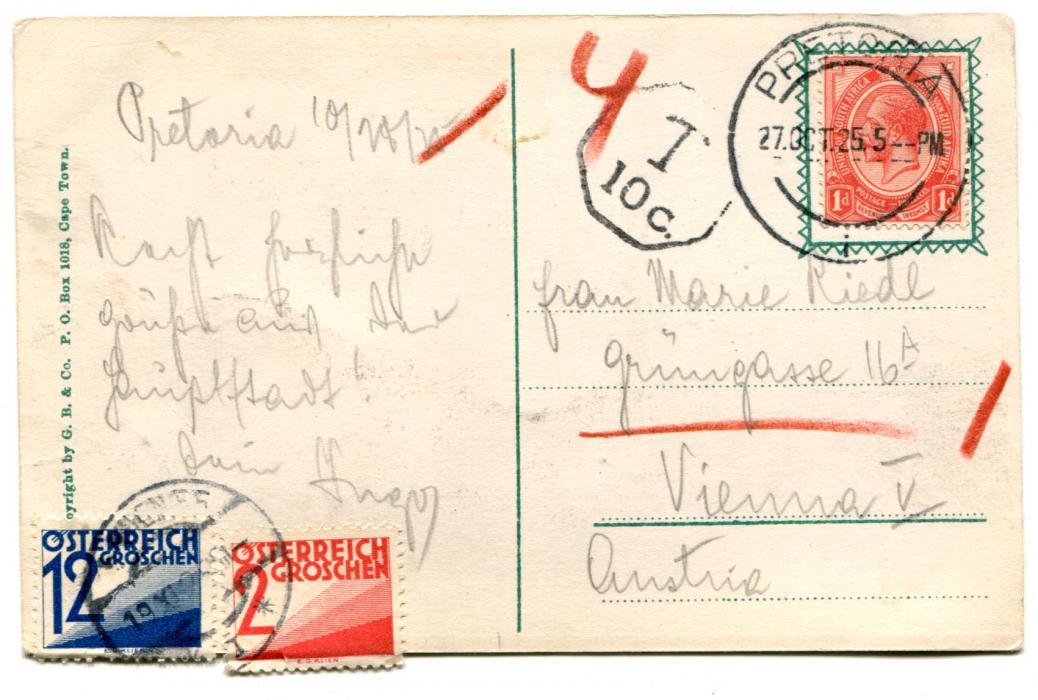 Pretoria
herzliche
Grüße aus der
Hauptstadt!
Dein Hugo
yright by G. B. & Co. P. O. Box 1018, Cape Town.
4
T
10 c.
PRETORIA
27.OCT.25.5--PM
UNION OF SOUTH AFRICA
UNIE VAN ZUID AFRIKA
POSTAGE
REVENUE
1d 1d
Frau Marie Riedl
Grüngasse 16A
Vienna V
Austria
ÖSTERREICH
12 GROSCHEN
ÖSTERREICH
2 GROSCHEN
E.G.KLIEN